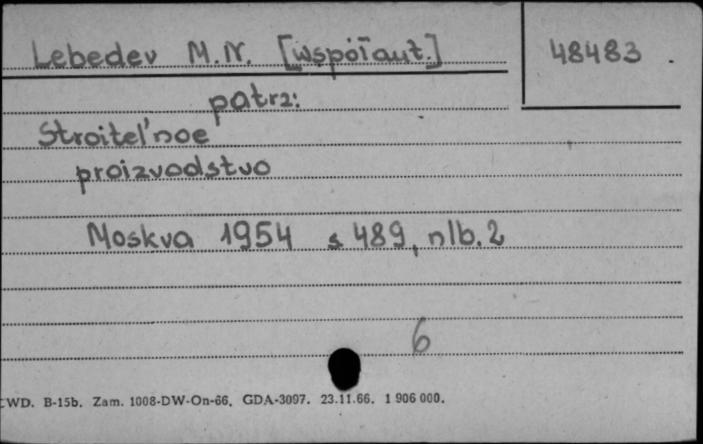 Lebedev M.N. [współaut.] 48483.
patrz:
Stroitel'noe
proizvodstvo
Moskva 1954 s 489, nlb. 2
6
CWD. B-15b. Zam. 1008-DW-On-66. GDA-3097. 23.11.66. 1 906 000.